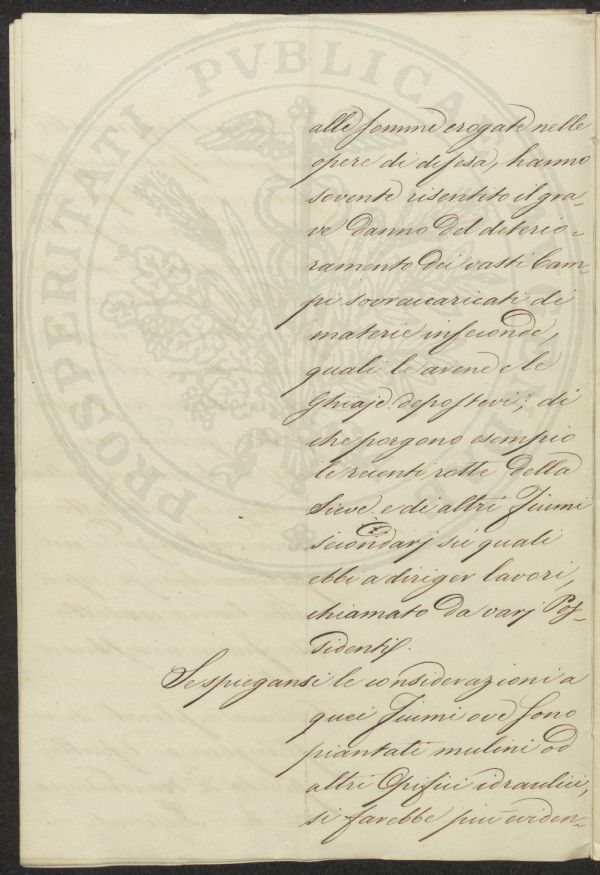 alle somme erogate nelle
opere di difesa, hanno
sovente risentito il gra-
ve danno del deterio-
ramento dei vasti Cam-
pi sovraccaricati di
materie infeconde,
quali le arene e le
Ghiaje depostevi; di
che porgono esempio
le recenti rotte della
Sieve e di altri Fiumi
secondarj su i quali
ebbi a diriger lavori,
chiamato da varj Pos-
sidenti.
Se spiegansi le considerazioni a
quei Fiumi ove sono
piantati mulini od
altri Opifici idraulici,
si farebbe piu eviden-
PROSPERITATI PVBLICAE